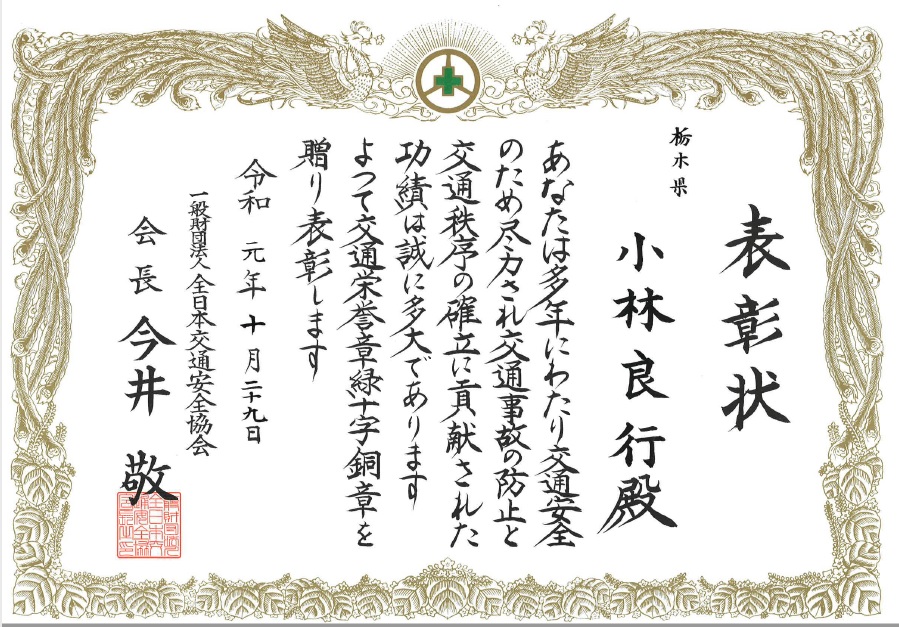 表彰状
栃木県
小林良行殿
あなたは多年にわたり交通安全
のため尽力され交通事故の防止と
交通秩序の確立に貢献された
功績は誠に多大であります
よつて交通栄誉章緑十字銅章を
贈り表彰します
令和元年十月二十九日
一般財団法人全日本交通安全協会
会長今井敬